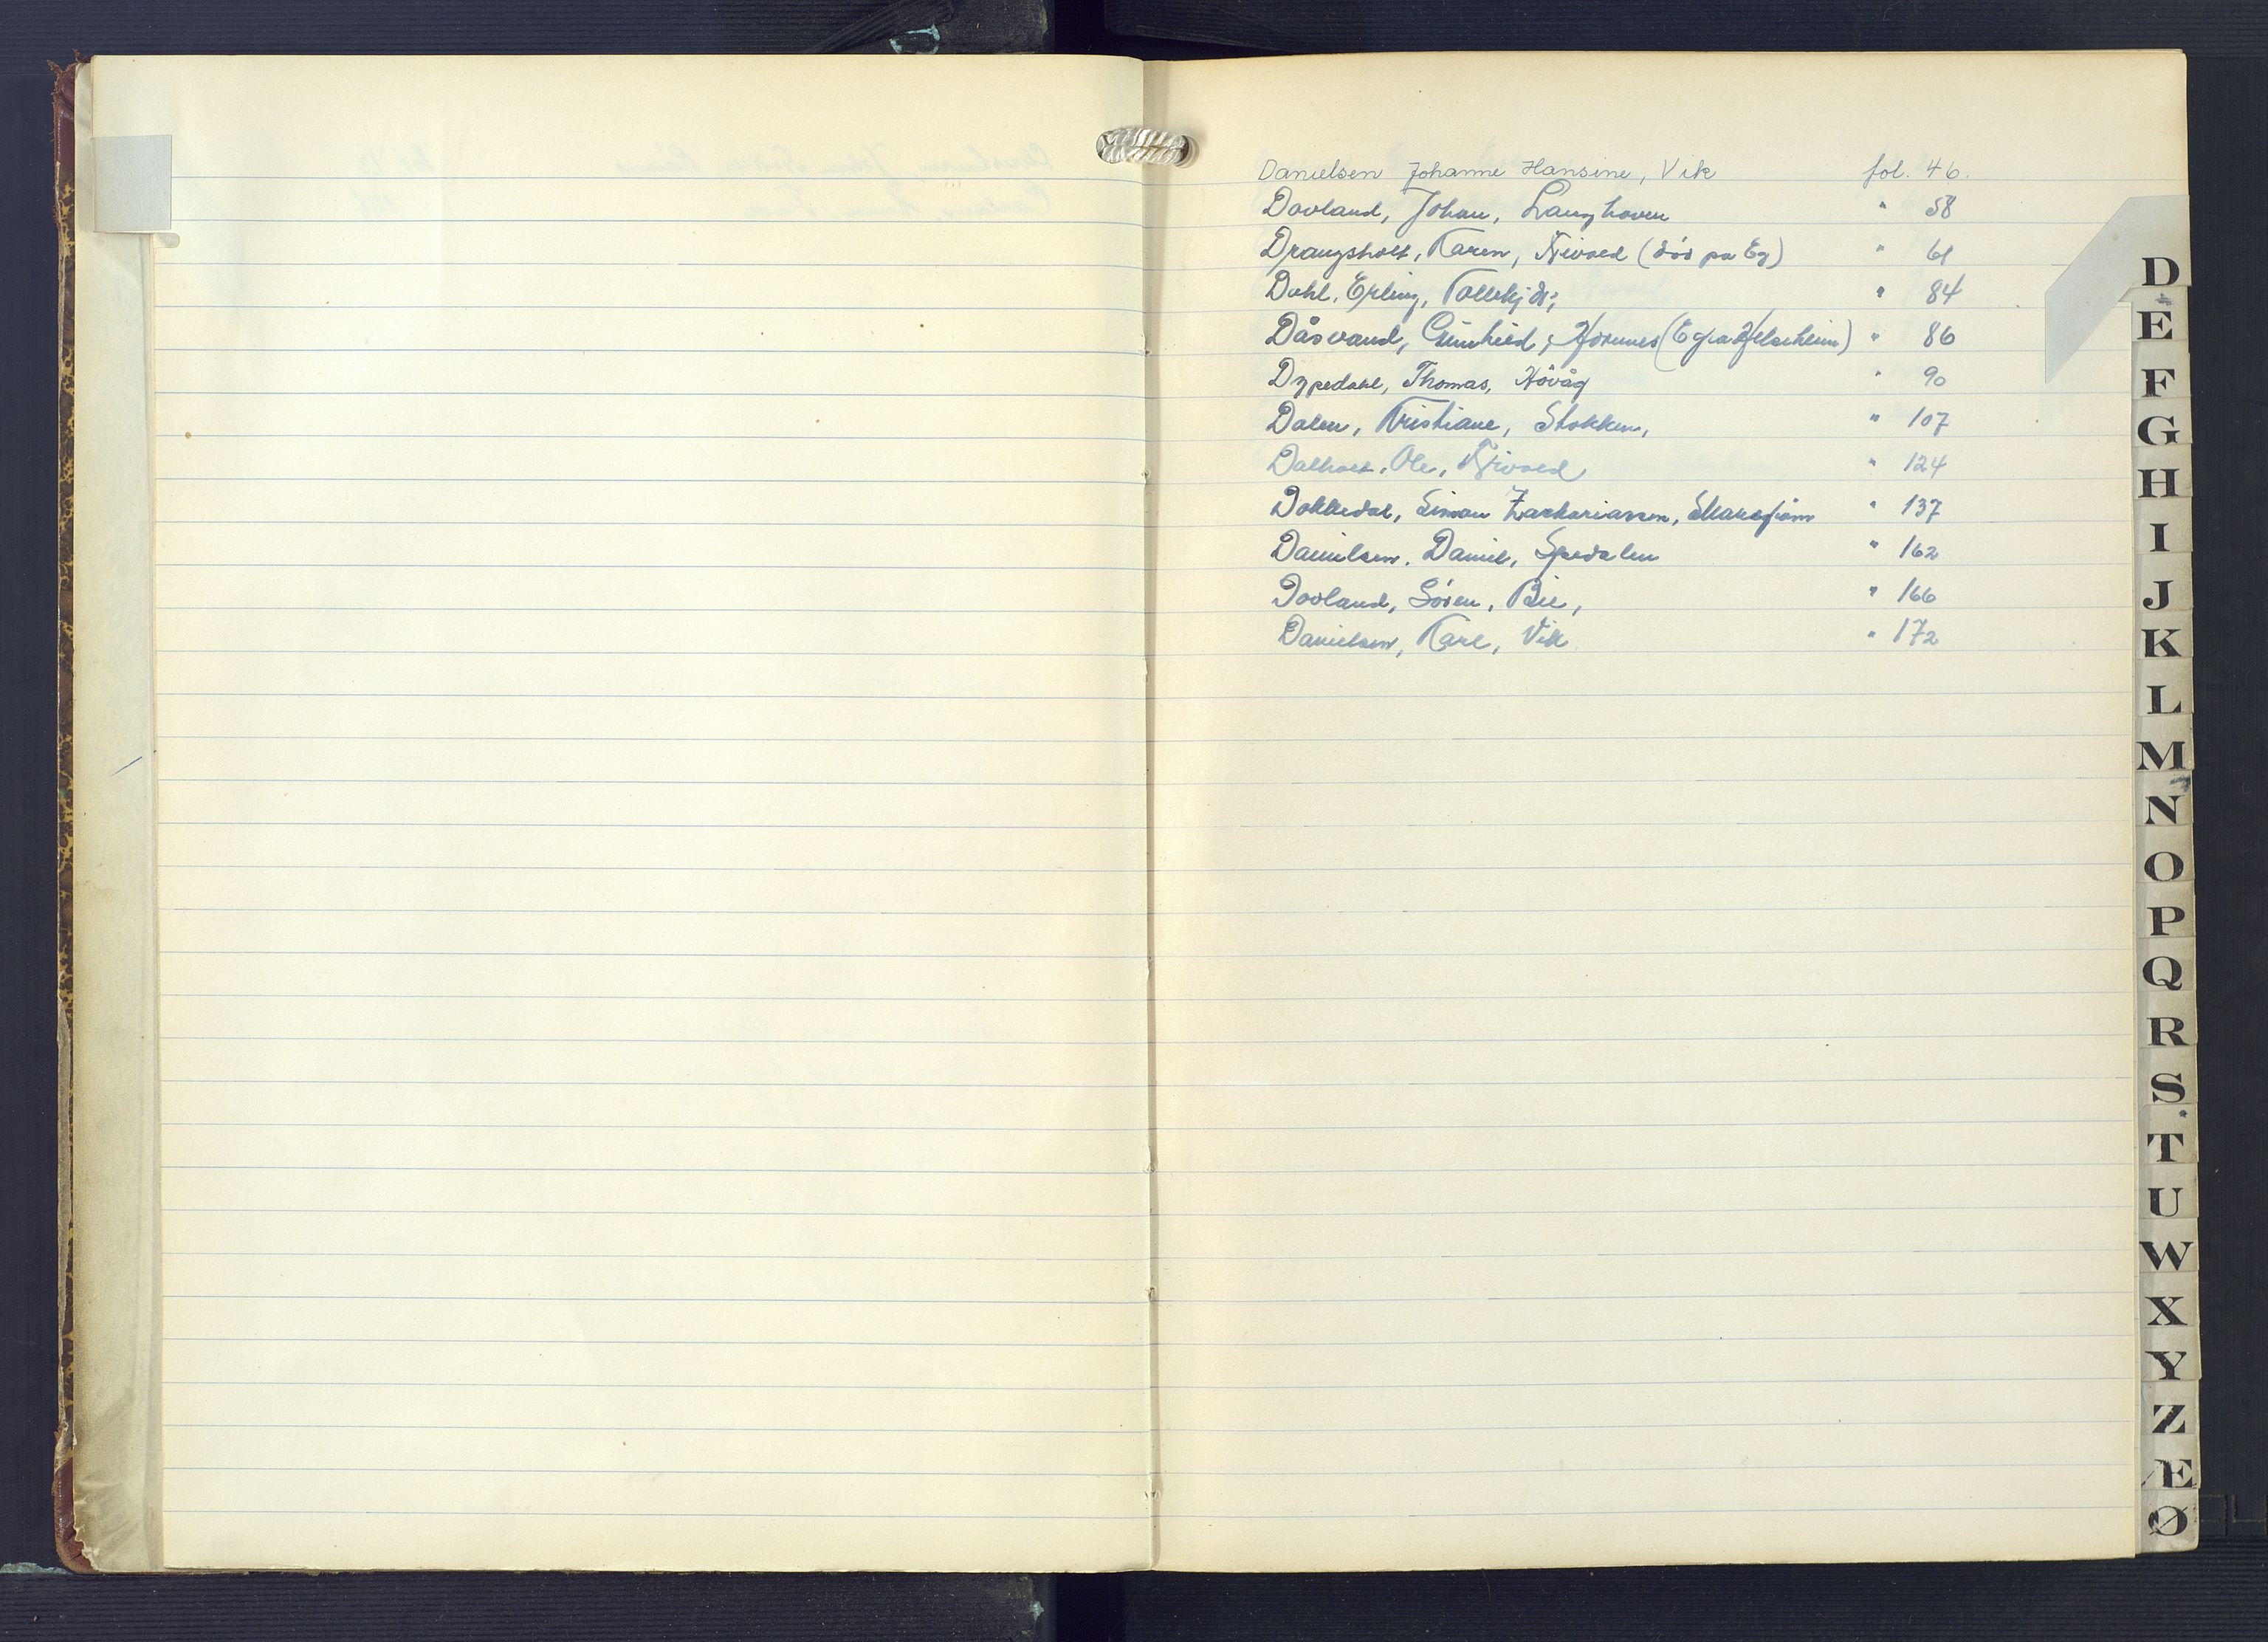 Danielsen Johanne Hansine, Vik fol. 46.
Dovland, Johan, Langhaven " 58
Drangsholt, Karen, Tveit (død på Eg) " 61
Dahl, Erling, " 84
Dåsvand, Gunhild, Hornnes " 86
Dypedahl, Thomas, Hövåg " 90
Dalen, Kristiane, Stokken, " 107
Dalholt, Ole, " 124
Dokkedal, Simon Zachariassen, " 137
Danielsen, Daniel, Spedalen " 162
Dovland, Sören, Bie, " 166
Danielsen, Karl, Vik " 172
D
E
F
G
H
I
J
K
L
M
N
O
P
Q
R
S
T
U
W
X
Y
Z
Æ
Ø